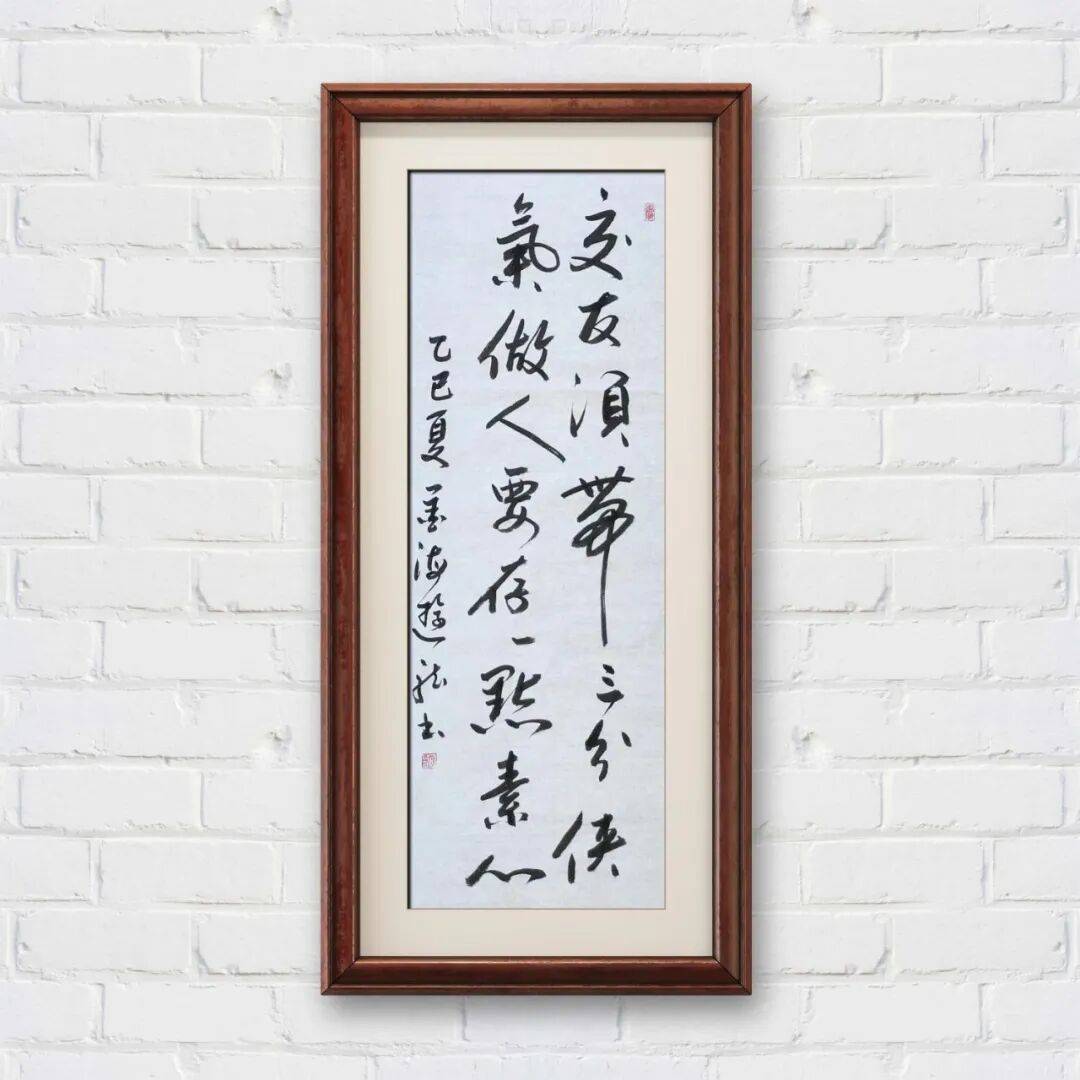 交友須帶三分俠
氣做人要存一點素心
乙巳夏墨海遊龍书